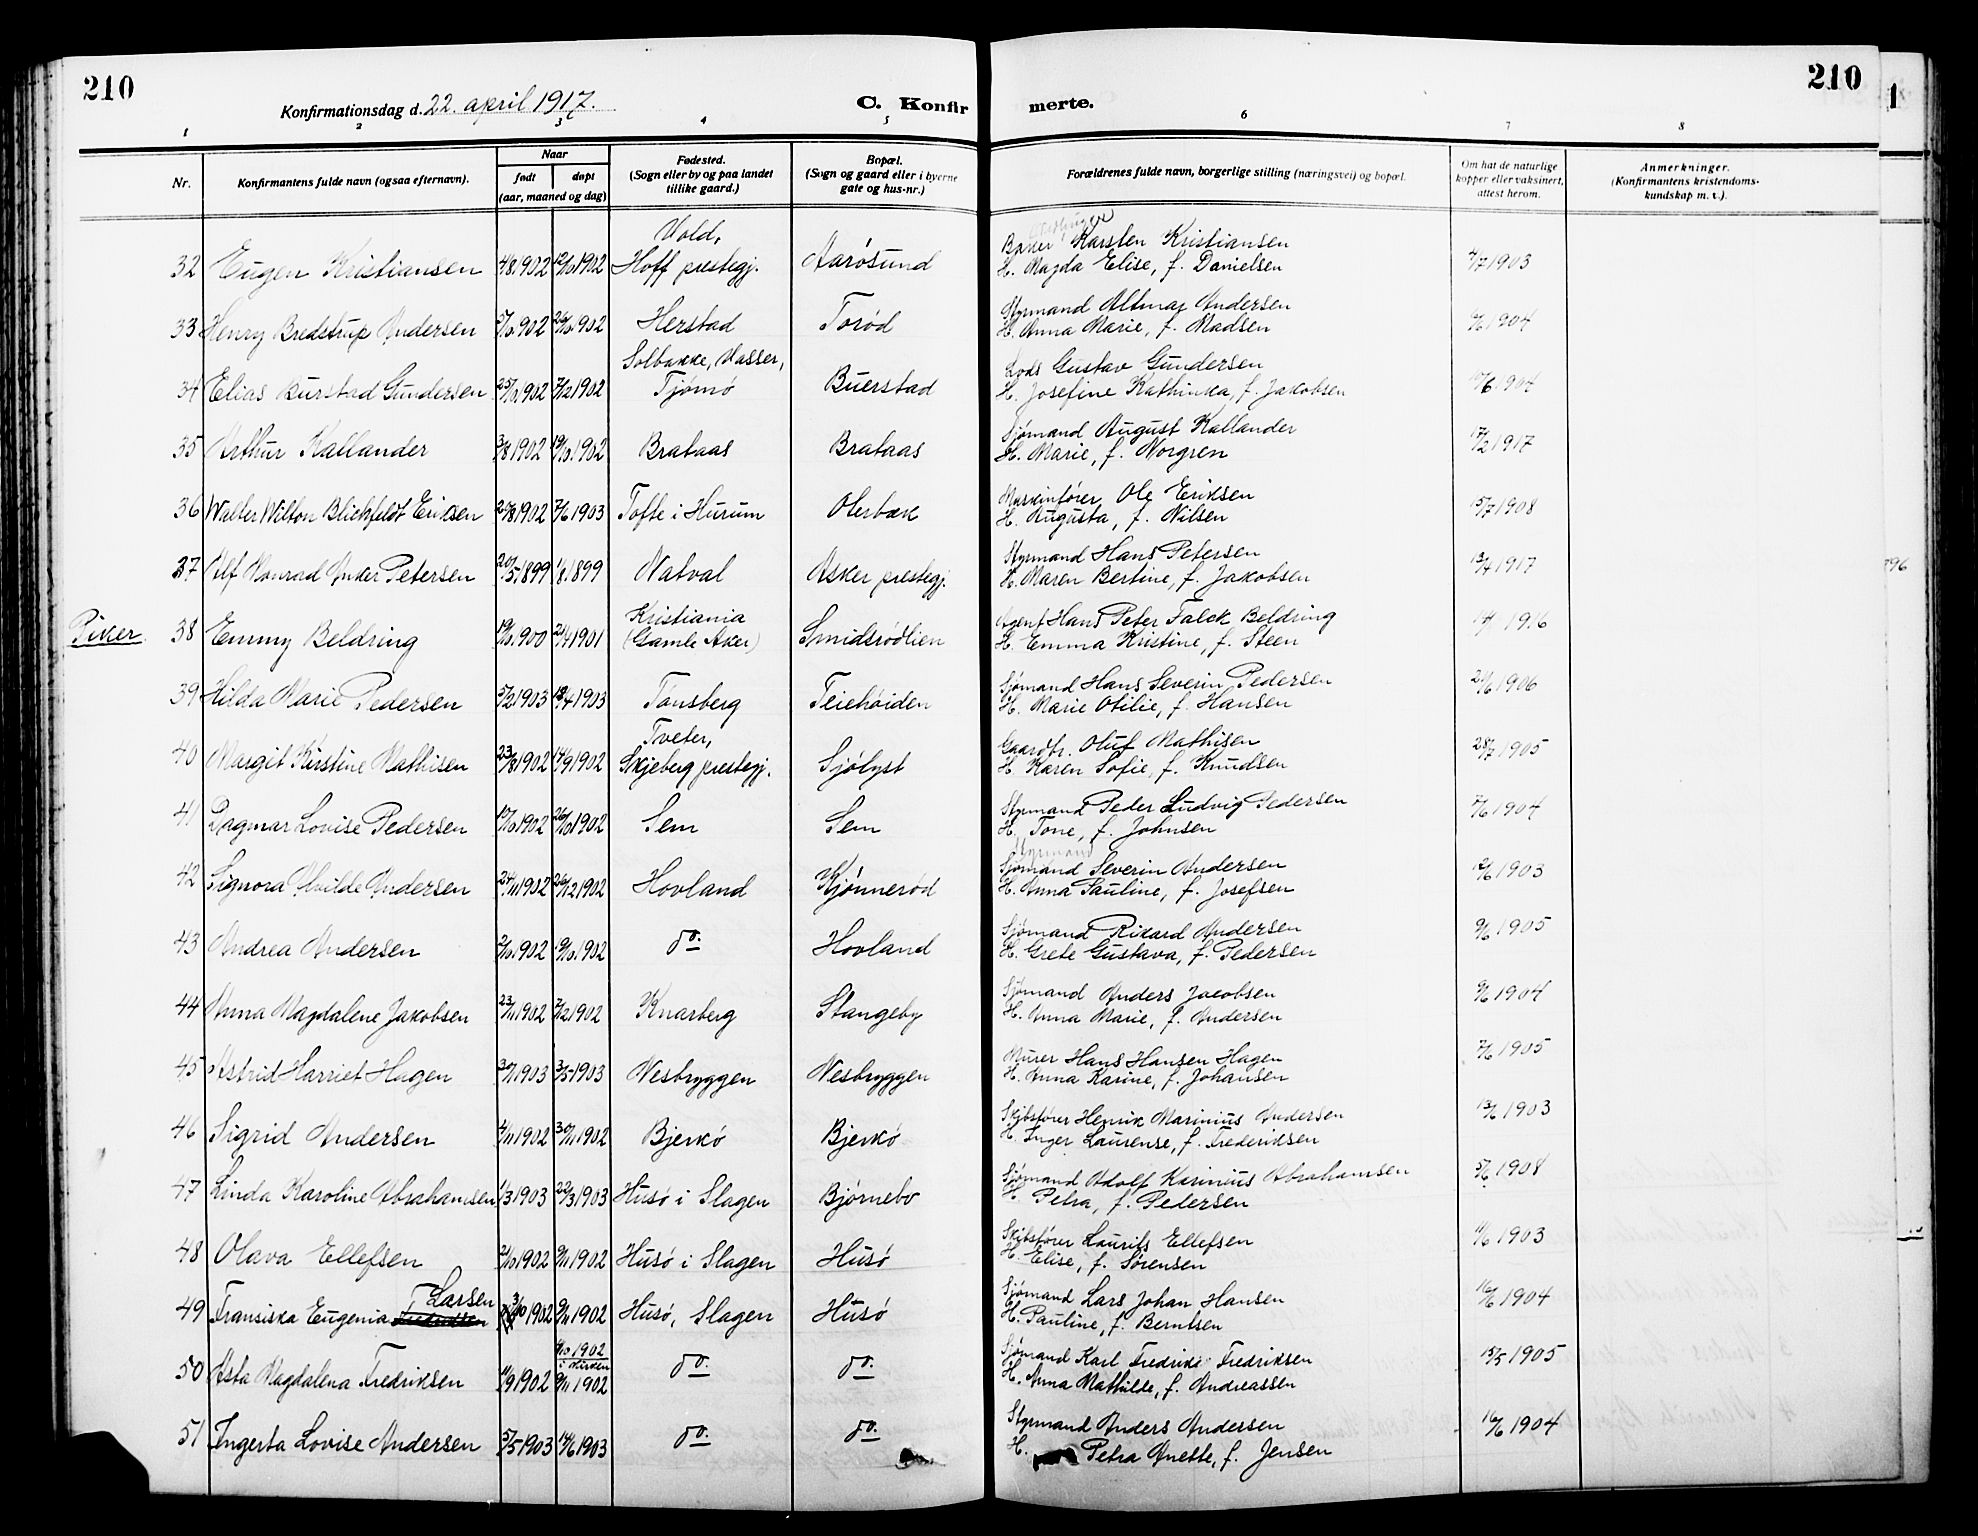 210
Konfirmationsdag d. 22. april 1917.
C. Konfir
merte.
210
1
1 2 3 4 5 6 7 8
Nr. Konfirmantens fulde navn (ogsaa efternavn).
Naar
født døpt
(aar, maaned og dag)
Fødested.
(Sogn eller by og paa landet
tillike gaard.)
Bopæl.
(Sogn og gaard eller i byerne
gate og hus-nr.)
Forældrenes fulde navn, borgerlige stilling (næringsvei) og bopæl.
Om hat de naturlige
kopper eller vaksinert,
attest herom.
Anmerkninger.
(Konfirmantens kristendoms-
kundskap m. v.).
Vold,
32 Eugen Kristiansen 4/8 1902 12/10 1902 Hoff prestegj. Aarösund
Baker Karsten Kristiansen
H. Magda Elise, f. Danielsen 4/7 1903
33 Henry Bredstrup Andersen 5/10 1902 26/10 1902 Herstad Torød
Styrmand Altmar Andersen
H. Anna Marie, f. Madsen 1904
Solbakke, Vasser,
34 Elias Burstad Gundersen 25/10 1902 7/12 1902 Tjømø Buerstad
Lods Gustav Gundersen
H. Josefine Kathinka, f. Jakobsen 1904
35 Arthur Kallander 3/8 1902 19/10 1902 Brataas Brataas
Sjømand August Kallander
H. Marie, f. Norgren 17/2 1917
36 Walter Wilton Blichfeldt Eriksen 1902 7/6 1903 Tofte i Hurum Olerbæk
Maskinfører Ole Eriksen
H. Augusta, f. Nilsen 15/7 1908
37 Alf Konrad Anker Petersen 20/5 1899 1/8 1899 Natval Asker prestegj.
Styrmand Hans Petersen
H. Maren Bertine, f. Jakobsen 13/4 1917
Piker. 38 Emmy Beldring 19/10 1900 21/4 1901 Kristiania
(Gamle Aker) Smidsrödlien
Agent Hans Peter Falck Beldring
H. Emma Kristine, f. Steen 1916
39 Hilda Marie Pedersen 5/2 1903 13/4 1903 Tønsberg Teiehöiden
Sjömand Hans Severin Pedersen
H. Marie Otilie, f. Hansen 1906
Tveter,
40 Margit Kirstine Mathisen 23/8 1902 14/9 1902 Skjeberg prestegj. Sjölyst
Gaardbr. Oluf Mathisen
H. Karen Sofie, f. Knudsen 28/7 1905
41 Dagmar Lovise Pedersen 1902 26/10 1902 Sem Sem
Styrmand Peder Ludvig Pedersen
H. Tone, f. Johnsen 7/6 1904
Styrmand
42 Signora Alvilde Andersen 24/11 1902 26/12 1902 Hovland Kjönneröd
Sjömand Severin Andersen
H. Anna Pauline, f. Josefsen 1903
43 Andrea Andersen 2/10 1902 19/10 1902 do. Hovland
Sjömand Rikard Andersen
H. Grete Gustava, f. Pedersen 9/6 1905
44 Anna Magdalene Jakobsen 23/11 1902 7/12 1902 Knarberg Stangeby
Sjömand Anders Jacobsen
H. Anna Marie, f. Andersen 9/6 1904
45 Astrid Harriet Hagen 1903 3/5 1903 Nesbryggen Nesbryggen
Murer Hans Hansen Hagen
H. Anna Karine, f. Johansen 7/6 1905
46 Sigrid Andersen 4/11 1902 30/11 1902 Bjerkö Bjerkö
Skibsfører Henrik Marinius Andersen
H. Inger Laurense, f. Frederiksen 13/6 1903
47 Linda Karoline Abrahamsen 1/3 1903 22/3 1903 Husö i Slagen Björnebo
Sjömand Adolf Karinius Abrahamsen
H. Petra, f. Pedersen 5/6 1908
48 Olava Ellefsen 21/10 1902 9/11 1902 Husö i Slagen Husö
Skibsfører Laurits Ellefsen
H. Elise, f. Sørensen 11/6 1903
Larsen
49 Fransiska Eugenia 3/10 1902 9/11 1902 Husö, Slagen Husö
Sjömand Lars Johan Hansen
H. Pauline, f. Berntsen 16/6 1904
50 Asta Magdalena Fredriksen 1902 1902
i kirken
9/11 1902 do. do.
Sjömand Karl Fredrik Fredriksen
H. Anna Mathilde, f. Andreassen 15/5 1905
51 Ingerta Lovise Andersen 5/5 1903 14/6 1903 do. do.
Styrmand Anders Andersen
H. Petra Anette, f. Jensen 16/6 1904